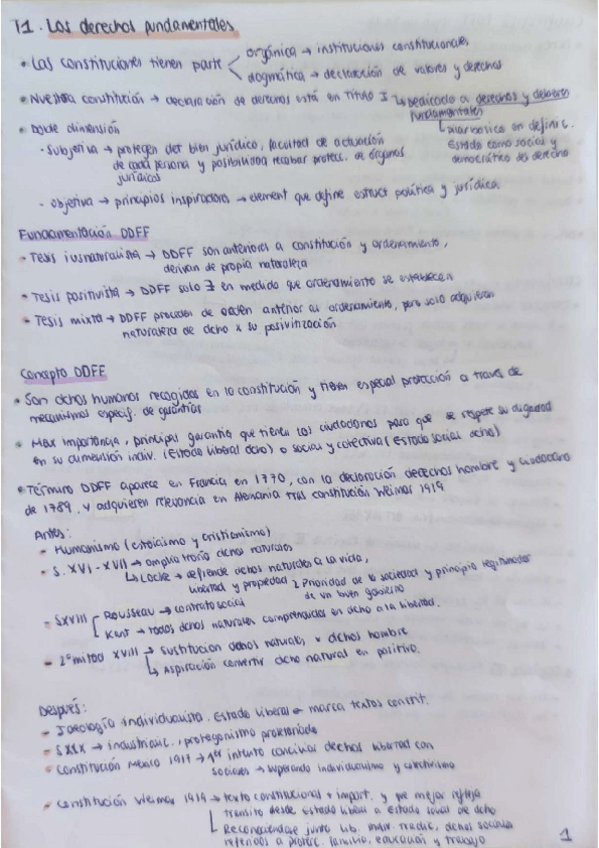 T1. Los derechos fundamentales
• Las constituciones tienen parte orgánica → instituciones constitucionales
dogmática → declaración de valores y derechos
• Nuestra constitución → declaración de derechos está en Título I ↳ Dedicado a derechos y deberes
fundamentales
↳ Diagnostico en definir c.
Estado como social y
democrático de derecho
• Doble dimensión
· Subjetiva → protegen det bien jurídico, facultad de actuación
de cada persona y posibilidad recabar protecc. de órganos
jurídicos
· objetiva → principios inspiradores → element que define estruct política y jurídica.
Fundamentación DDFF
- Tesis iusnaturalista → DDFF son anteriores a constitución y ordenamiento,
derivan de propia naturaleza
- Tesis positivista → DDFF solo ∃ en medida que ordenamiento se establecen
- Tesis mixta → DDFF proceden de orden anterior al ordenamiento, pero solo adquieren
naturaleza de dcho x su positivización
Concepto DDFF
• Son dchos humanos recogidos en la constitución y tienen especial protección a través de
mecanismos especif. de garantías
• Max importancia, principal garantía que tienen los ciudadanos para que se respete su dignidad
en su dimensión indiv. (Estado liberal dcho) o social y colectiva (Estado social dcho)
• Término DDFF aparece en Francia en 1770, con la declaración derechos hombre y ciudadano
de 1789. y adquieren relevancia en Alemania tras constitución Weimar 1919.
Antes:
- Humanismo (estoicismo y cristianismo)
- S. XVI - XVII → amplia teoría dchos naturales
↳ Locke → defiende dchos naturales a la vida,
libertad y propiedad Prioridad de la sociedad y principio legitimador
de un buen gobierno
- SXVIII Rousseau → contrato social
Kant → todos dchos naturales comprendidos en dcho a la libertad.
- 2ª mitad XVIII → Sustitución dchos naturales x dchos hombre
↳ Aspiración convertir dcho natural en positivo.
Después:
- Ideología individualista. Estado liberal → marca textos constit.
- SXIX → industrializ., protagonismo proletariado
- Constitución Mexico 1917 → 1er intento conciliar dechos libertad con
sociales → superando individualismo y colectivismo
- Constitución Weimar 1919 → texto constitucional + import. y que mejor refleja
transito desde Estado liberal a Estado social de dcho
↳ Reconociendose junto lib. indiv. tradic, dchos sociales
referidos a protecc. familia, educación y trabajo
1